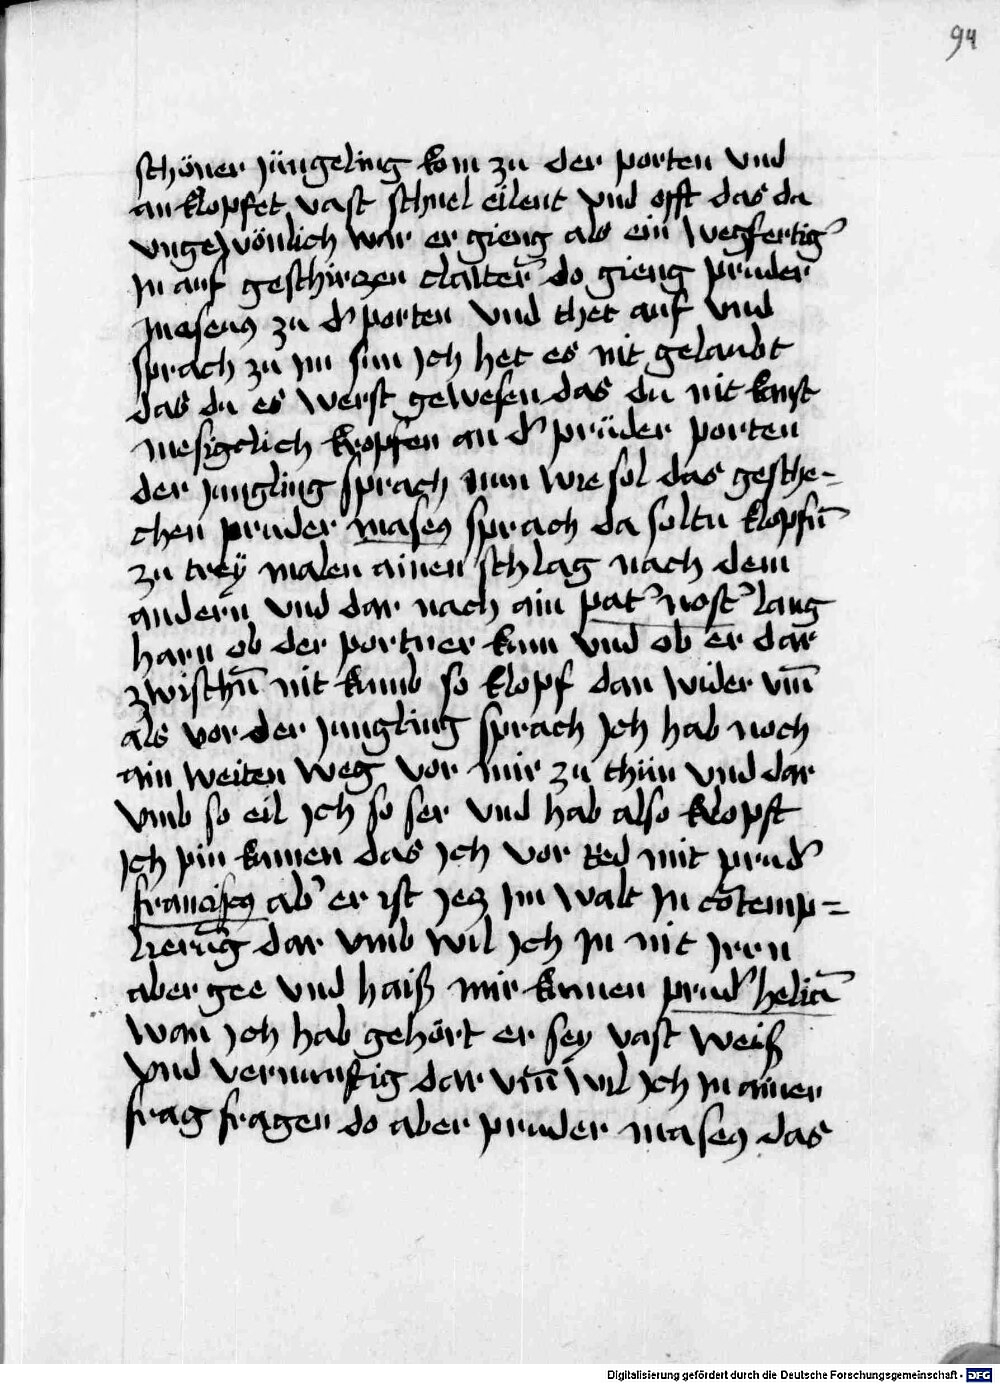 94
schöner jüngeling kom zu der porten vnd
an klopfet vast schnel eilent vnd offt das da
vngewönlich war er gieng als ein wegfertig'
in auf geschirczen claiter' do gieng pruder
maseus zu d' porten vnd thet auf vnd
sprach zu im sun ich het es nit gelaubt
das du es werst gewesen das du nit kanst
mesigclich klopfen an d' prüder porten
der jungling sprach nun wie sol das gesche=
chen pruder maseus sprach da soltu klopfn̄
zu treÿ malen ainen schlag nach dem
andern vnd dar nach ain pat' nost' lang
harn ob der portner kum vnd ob er dar
zwischn̄ nit kumb so klopf dan wider vm̄
als vor der jungling sprach ich hab noch
ain weiten weg vor mir zu thün vnd dar
vmb so eil ich so ser vnd hab also klopft
ich pin kumen das ich vor red mit prud'
franciscus ab' er ist jecz im walt in cōtemp=
lierūg dar vmb wil ich in nit jrrn
aber gee vnd haiß mir kumen prud' heliā
wan ich hab gehört er sey vast weiß
vnd vernunftig dar vm̄ wil ich in ainer
frag fragen do aber pruder maseus das
Digitalisierung gefördert durch die Deutsche Forschungsgemeinschaft - DFG